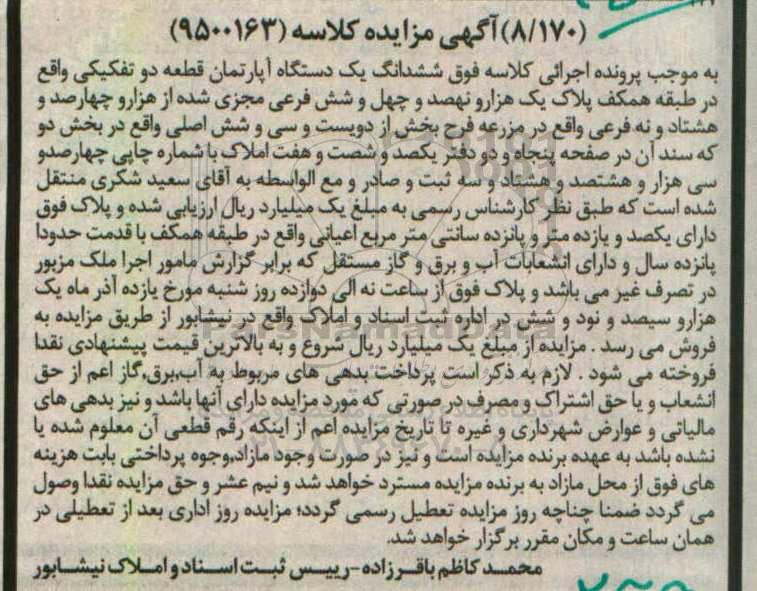 (۸/۱۷۰) آگهی مزایده کلاسه (۹۵۰۰۱۶۳)
به موجب پرونده اجرائی کلاسه فوق ششدانگ یک دستگاه آپارتمان قطعه دو تفکیکی واقع
در طبقه همکف پلاک یک هزارو نهصد و چهل و شش فرعی مجزی شده از هزارو چهارصد و
هشتاد و نه فرعی واقع در مزرعه فرح بخش از دویست و سی و شش اصلی واقع در بخش دو
که سند آن در صفحه پنجاه و دو دفتر یکصد و شصت و هفت املاک با شماره چاپی چهارصدو
سی هزار و هشتصد و هشتاد و سه ثبت و صادر و مع الواسطه به آقای سعید شکری منتقل
شده است که طبق نظر کارشناس رسمی به مبلغ یک میلیارد ریال ارزیابی شده و پلاک فوق
دارای یکصد و یازده متر و پانزده سانتی متر مربع اعیانی واقع در طبقه همکف با قدمت حدودا
پانزده سال و دارای انشعابات آب و برق و گاز مستقل که برابر گزارش مامور اجرا ملک مزبور
در تصرف غیر می باشد و پلاک فوق از ساعت نه الی دوازده روز شنبه مورخ یازده آذر ماه یک
هزارو سیصد و نود و شش در اداره ثبت اسناد و املاک واقع در نیشابور از طریق مزایده به
فروش می رسد . مزایده از مبلغ یک میلیارد ریال شروع و به بالاترین قیمت پیشنهادی نقدا
فروخته می شود . لازم به ذکر است پرداخت بدهی های مربوط به آب،برق،گاز اعم از حق
انشعاب و یا حق اشتراک و مصرف در صورتی که مورد مزایده دارای آنها باشد و نیز بدهی های
مالیاتی و عوارض شهرداری و غیره تا تاریخ مزایده اعم از اینکه رقم قطعی آن معلوم شده یا
نشده باشد به عهده برنده مزایده است و نیز در صورت وجود مازاد،وجوه پرداختی بابت هزینه
های فوق از محل مازاد به برنده مزایده مسترد خواهد شد و نیم عشر و حق مزایده نقدا وصول
می گردد ضمنا چناچه روز مزایده تعطیل رسمی گردد؛ مزایده روز اداری بعد از تعطیلی در
همان ساعت و مکان مقرر برگزار خواهد شد.
محمدکاظم باقرزاده -رییس ثبت اسناد و املاک نیشابور